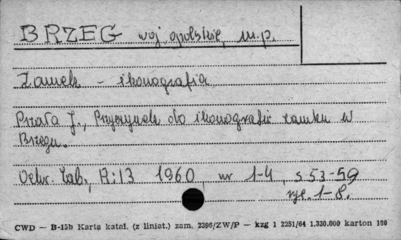 BRZEG woj. opolskie, m.p.
Zamek - ikonografia
Prała J., Przyczynek do ikonografii zamku w
Brzegu.
Ochr. Zab., R: 13 1960, nr 1-4, s 53-59
ryc. 1-8.
CWD — B-15b Karta katal. (z liniat.) zam. 2396/ZW/P — kzg 1 2251/64 1.330.000 karton 180